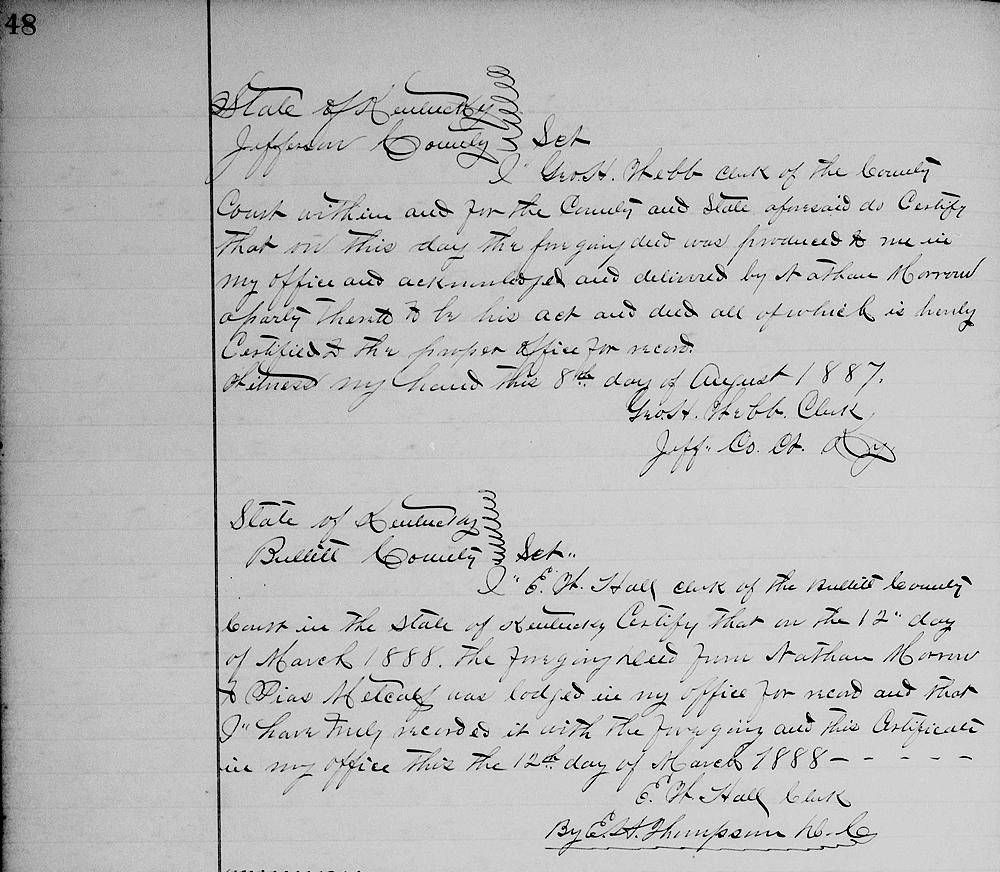 48
State of Kentucky
Jefferson County Sct
I" Geo. H. Webb clerk of the County
Court within and for the County and State aforesaid do Certify
that on this day the foregoing deed was produced to me in
my office and acknowledged and delivered by Nathan Morrow
a party thereto to be his act and deed all of which is hereby
Certified to the proper office for record.
Witness my hand this 8th day of August 1887.
Geo. H. Webb. Clerk
Jeff. Co. Ct. Ky.
State of Kentucky
Bullitt County Sct"
I" E. W. Hall clerk of the Bullitt County
Court in the State of Kentucky Certify that on the 12" day
of March 1888. the foregoing deed from Nathan Morrow
to Pias Metcalf was lodged in my office for record and that
I" have truly recorded it with the foregoing and this Certificate
in my office this the 12th day of March 1888 - - - - -
E. W. Hall Clerk
By E. H. Thompson D. C.